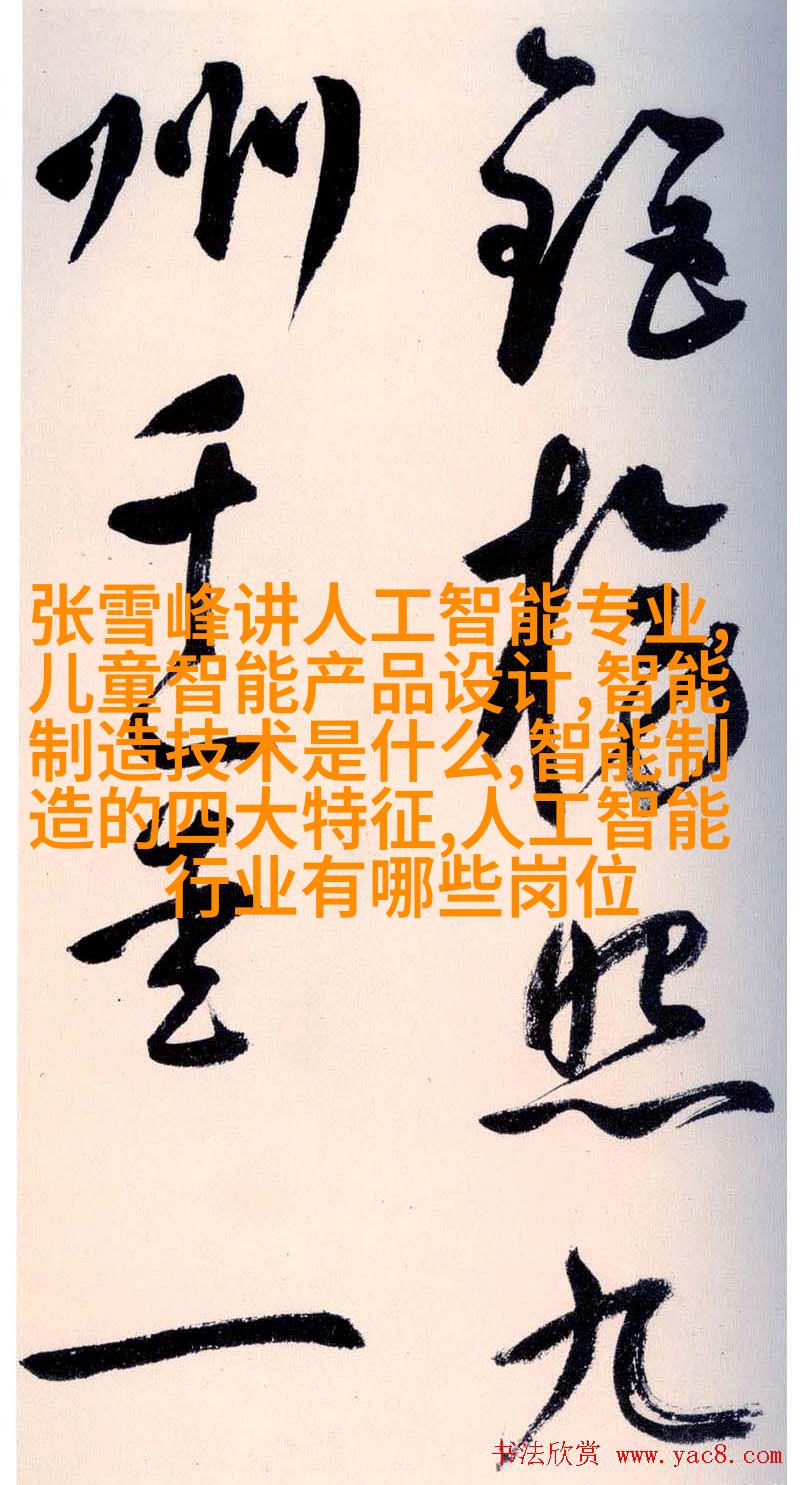 照九
州千里一
张雪峰讲人工智能专业,
儿童智能产品设计,智能
制造技术是什么,智能制
造的四大特征,人工智能
行业有哪些岗位
书法欣赏 www.yac8.com